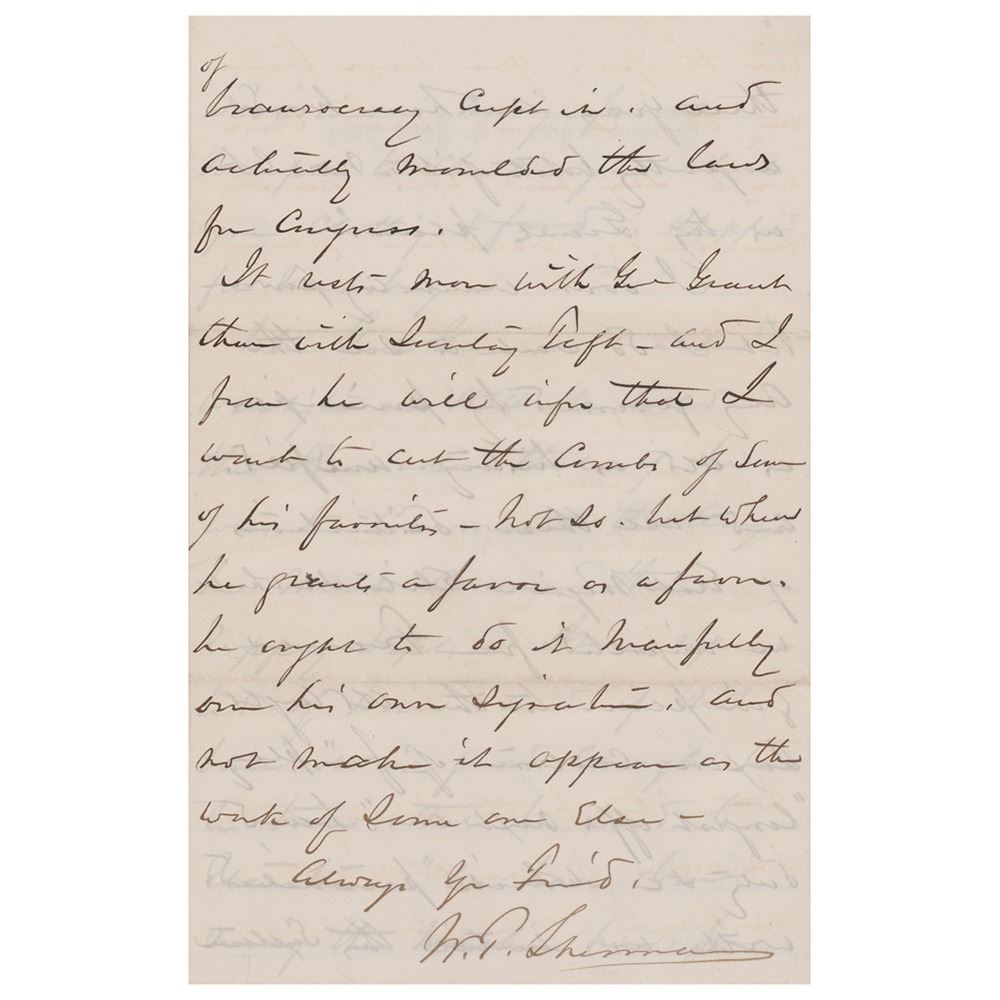 of
beaurocracy crept in. and
actually moulded the laws
for Congress.
It rests more with Gen Grant
than with Secretary Taft - and I
fear he will infer that I
want to cut the combs of Some
of his favorites - Not So. but when
he grants a favor as a favor.
he ought to do it manfully
over his own Signature, and
not make it appear as the
work of Some one Else -
Always Yr Friend,
W. T. Sherman